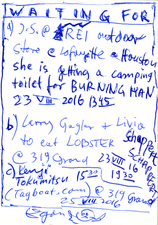 WAITING FOR
a) J.S. @ REI outdoor
Store @ Lafayette & Houston
she is getting a camping
toilet for BURNING MAN
23 VIII 2016 1345
b) Larry Gagler + Livia
to eat LOBSTER
@ 319 Grand
23 VIII 16
c) Kenji
Tokumitsu 15
1930
(Tagboat.com) @ 319 Grand
25 VIII 2016